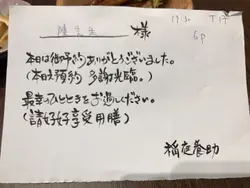 陳先生 様
17:30
6p
本日は御予約ありがとうございました。
(本日又預約 多謝光臨。)
最幸のひとときをお過しください。
(請好好享受用膳)
稲庭養助